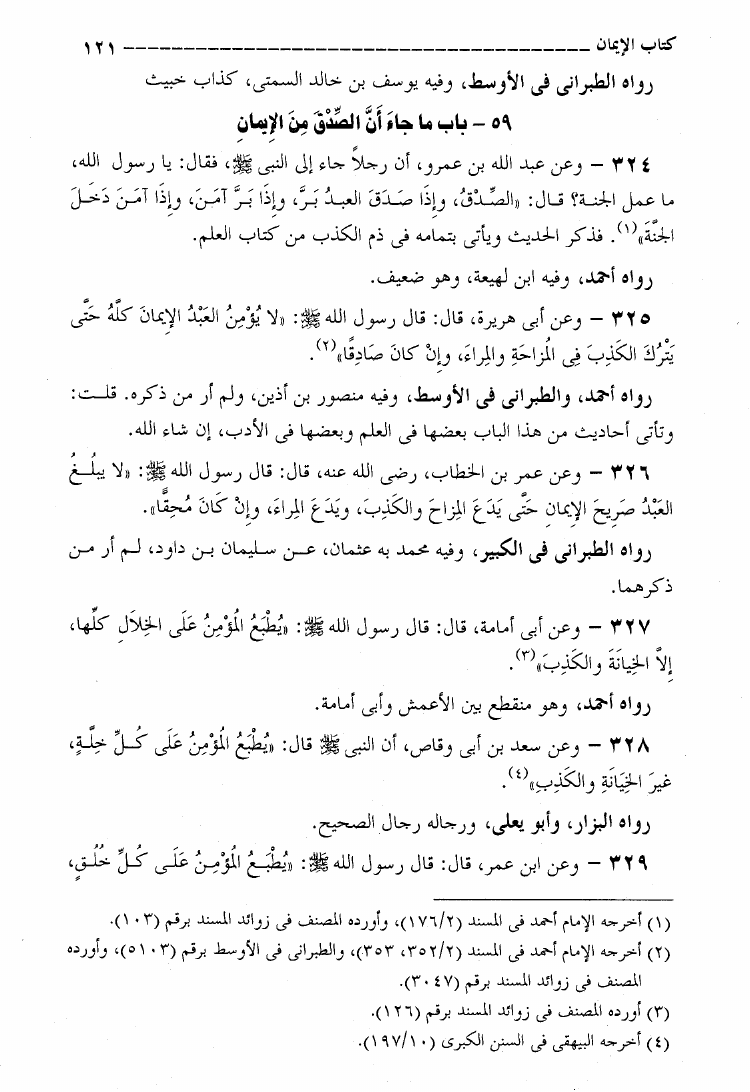 كتاب الإيمان ــــــــــــــــــــــــــــــــــــــــ ١٢١
رواه الطبرانى فى الأوسط، وفيه يوسف بن خالد السمتى، كذاب خبيث
٥٩ – باب ما جاءَ أَنَّ الصِّدْقَ مِنَ الإِيمانِ
٣٢٤ – وعن عبد الله بن عمرو، أن رجلاً جاء إلى النبى ﷺ، فقال: يا رسول الله،
ما عمل الجنة؟ قال: «الصِّدْقُ، وإِذَا صَدَقَ العبدُ بَرَّ، وإِذَا بَرَّ آمَنَ، وإِذَا آمَنَ دَخَلَ
الجنَّةَ»(١). فذكر الحديث ويأتى بتمامه فى ذم الكذب من كتاب العلم.
رواه أحمد، وفيه ابن لهيعة، وهو ضعيف.
٣٢٥ – وعن أبى هريرة، قال: قال رسول الله ﷺ: «لا يُؤْمِنُ العَبْدُ الإِيمانَ كلَّهُ حَتَّى
يَتْرُكَ الكَذِبَ فِى المُزَاحَةِ والمِراءَ، وإِنْ كانَ صَادِقًا»(٢).
رواه أحمد، والطبرانى فى الأوسط، وفيه منصور بن أذين، ولم أر من ذكره. قلت:
وتأتى أحاديث من هذا الباب بعضها فى العلم وبعضها فى الأدب، إن شاء الله.
٣٢٦ – وعن عمر بن الخطاب، رضى الله عنه، قال: قال رسول الله ﷺ: «لا يبلُغُ
العَبْدُ صَرِيحَ الإِيمانِ حَتَّى يَدَعَ المِزاحَ والكَذِبَ، ويَدَعَ المِراءَ، وإِنْ كَانَ مُحِقًّا».
رواه الطبرانى فى الكبير، وفيه محمد به عثمان، عن سليمان بن داود، لم أر من
ذكرهما.
٣٢٧ – وعن أبى أمامة، قال: قال رسول الله ﷺ: «يُطْبَعُ المُؤْمِنُ عَلَى الخِلَالِ كلِّها،
إِلاَّ الخِيانَةَ والكَذِبَ»(٣).
رواه أحمد، وهو منقطع بين الأعمش وأبى أمامة.
٣٢٨ – وعن سعد بن أبى وقاص، أن النبى ﷺ قال: «يُطْبَعُ المُؤْمِنُ عَلَى كُلِّ خِلَّةٍ،
غيرَ الخِيَانَةِ والكَذِبِ»(٤).
رواه البزار، وأبو يعلى، ورجاله رجال الصحيح.
٣٢٩ – وعن ابن عمر، قال: قال رسول الله ﷺ: «يُطْبَعُ المُؤْمِنُ عَلَى كُلِّ خُلُقٍ،
(١) أخرجه الإمام أحمد فى المسند (١٧٦/٢)، وأورده المصنف فى زوائد المسند برقم (١٠٣).
(٢) أخرجه الإمام أحمد فى المسند (٣٥٢/٢، ٣٥٣)، والطبرانى فى الأوسط برقم (٥١٠٣)، وأورده
المصنف فى زوائد المسند برقم (٣٠٤٧).
(٣) أورده المصنف فى زوائد المسند برقم (١٢٦).
(٤) أخرجه البيهقى فى السنن الكبرى (١٩٧/١٠).